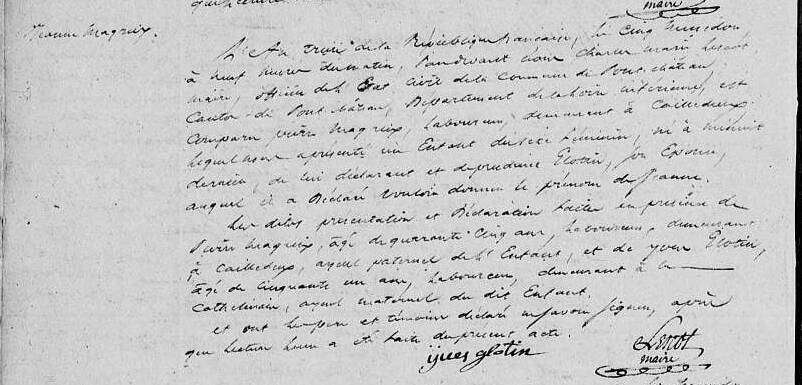 maire
Jeanne Magreix.
L'An trois de la République française, le Cinq Messidor,
à neuf heures du matin, Pardevant nous Charles Marie
maire, officier de l'Etat Civil de la Commune de Pontchâteau
Canton de Pontchâteau, Département de la Loire inférieure, est
Comparu pierre Magreix, Laboureur, demeurant à Cailledeux
lequel nous a présenté un Enfant du sexe féminin, né à minuit
dernier, de lui déclarant et de Glotin, son Epouse,
auquel il a Déclaré vouloir donner le prénom de Jeanne.
Les dites présentation et Déclaration faites en présence de
Pierre Magreix, âgé de quarante Cinq ans, Laboureur, demeurant
à Cailledeux, ayeul paternel de l'Enfant, et de yves Glotin,
âgé de Cinquante un ans, Laboureur, demeurant à la
ayeul maternel du dit Enfant.
et ont les père et témoins déclaré ne savoir signer, après
que lecture leur a été faite du présent acte.
yves glotin
maire